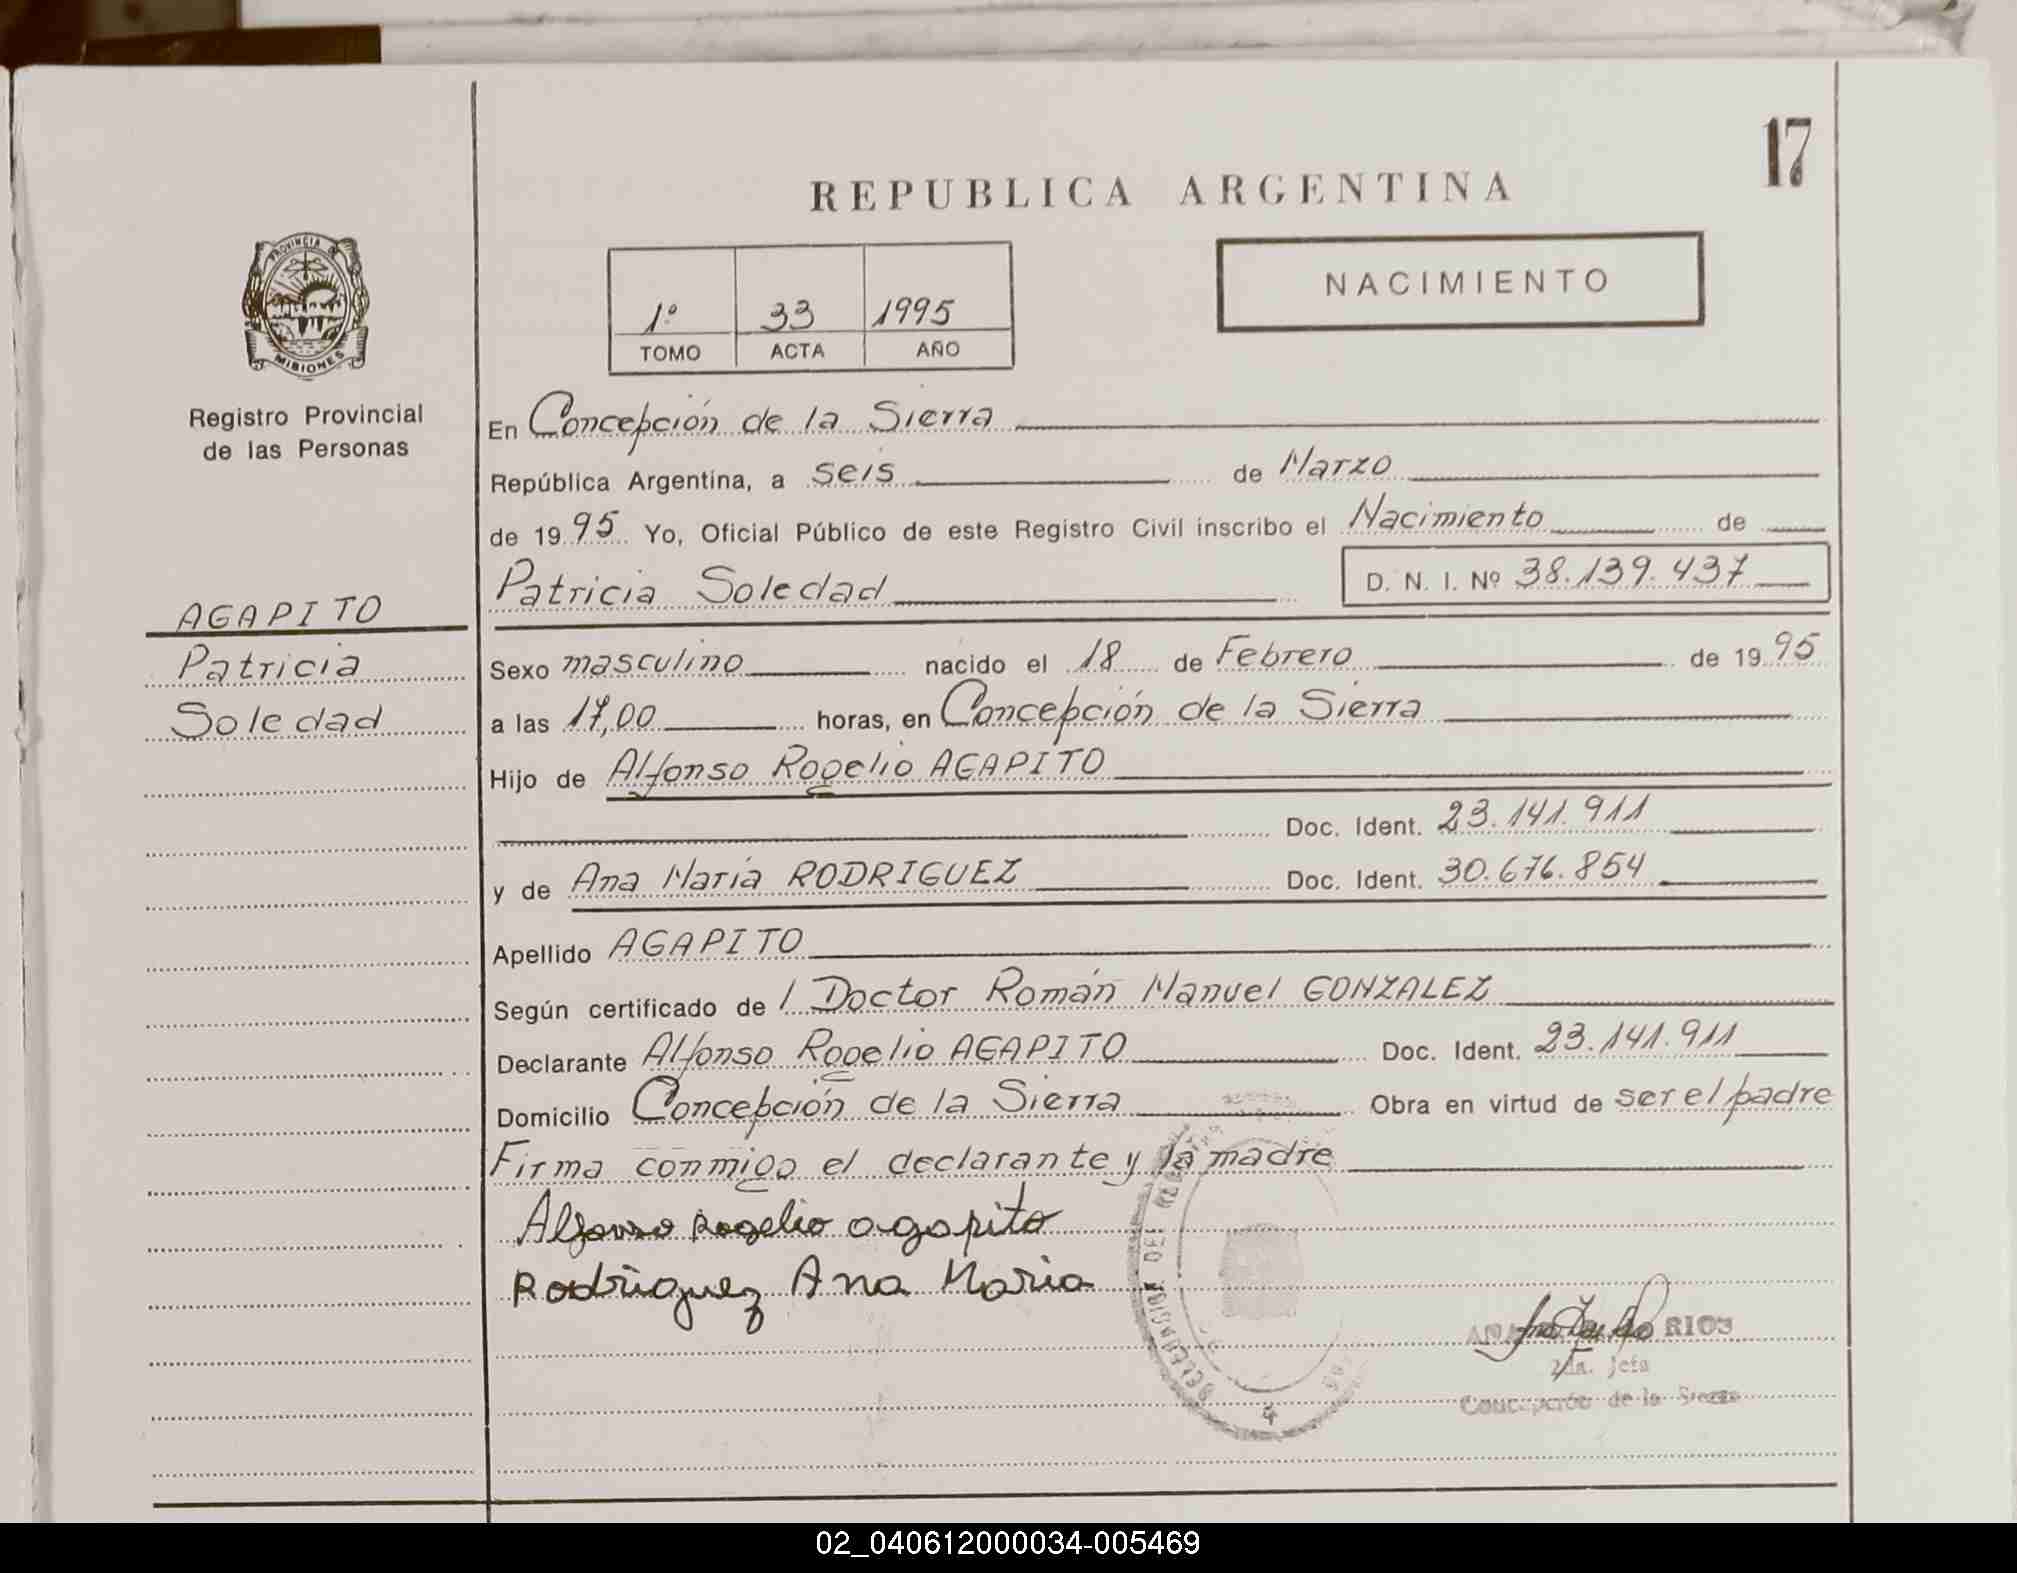 17
REPUBLICA ARGENTINA
PROVINCIA DE
MISIONES
Registro Provincial
de las Personas
1º 33 1995
TOMO ACTA AÑO
NACIMIENTO
En Concepción de la Sierra
República Argentina, a seis de Marzo
de 1995 Yo, Oficial Público de este Registro Civil inscribo el Nacimiento de
Patricia Soledad D. N. I. Nº 38.139.437
AGAPITO
Patricia
Soledad
Sexo masculino nacido el 18 de Febrero de 1995
a las 17,00 horas, en Concepción de la Sierra
Hijo de Alfonso Rogelio AGAPITO
Doc. Ident. 23.141.911
y de Ana María RODRIGUEZ Doc. Ident. 30.676.854
Apellido AGAPITO
Según certificado de l Doctor Román Manuel GONZALEZ
Declarante Alfonso Rogelio AGAPITO Doc. Ident. 23.141.911
Domicilio Concepción de la Sierra Obra en virtud de ser el padre
Firma conmigo el declarante y la madre
Alfonso Rogelio agapito
Rodriguez Ana Maria
RIOS
2da. Jefa
Concepción de la Sierra
02_040612000034-005469